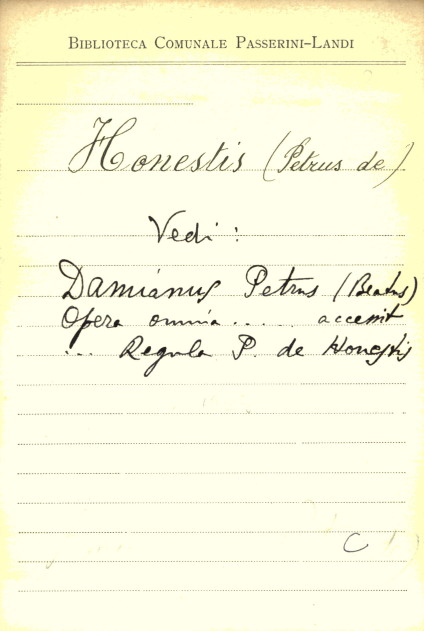 BIBLIOTECA COMUNALE PASSERINI-LANDI
Honestis (Petrus de)
Vedi :
Damianus Petrus (Beatus)
Opera omnia ..... accessit
... Regula P. de Honestis
C